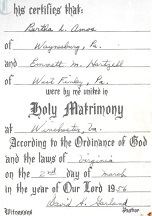 his certifies that:
Bertha L. Amos
of Waynesburg, Pa.
and Emmett M. Hartzell
of West Finley, Pa.
were by me united in
Holy Matrimony
at Winchester, Va.
According to the Ordinance of God
and the laws of Virginia
on the 2nd day of March
in the year of Our Lord 1956
David A. Garland
Witnesses
Pastor